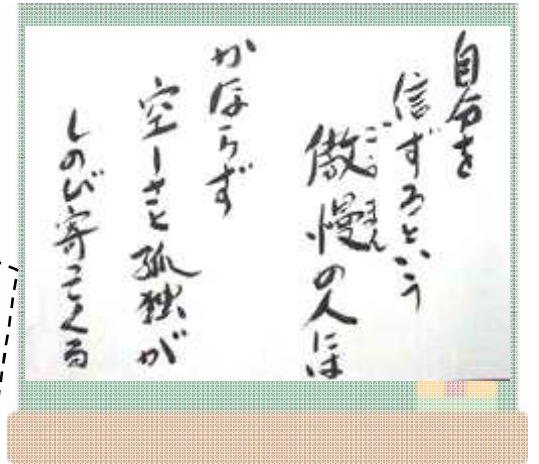 自分を
信ずるという
傲慢の人には
ごうまん
かならず
空しさと孤独が
しのび寄ってくる